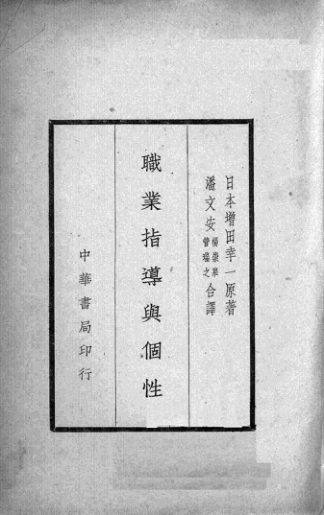 日本增田幸一原著
潘文安 楊崇皋 管瑞之 合譯
職業指導與個性
中華書局印行